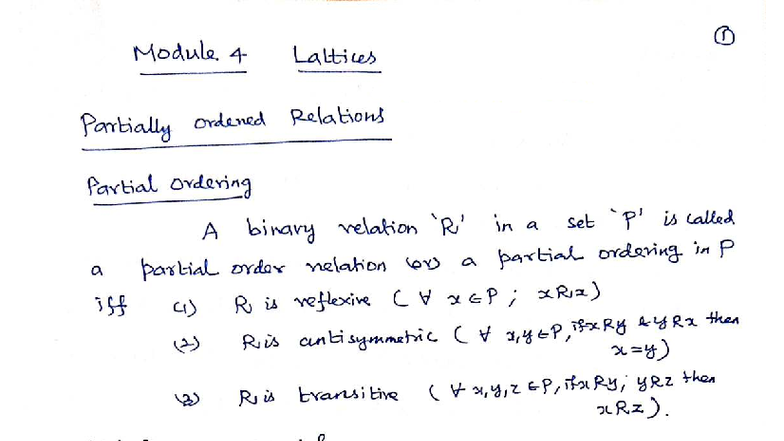 ①
Module 4 Lattices
Partially ordered Relations
Partial ordering
A binary relation 'R' in a set 'P' is called
a partial order relation (or) a partial ordering in P
iff (1) R is reflexive (∀ x∈P ; xRx)
(2) R is antisymmetric (∀ x,y∈P, if xRy & yRx then
x=y)
(3) R is transitive (∀ x,y,z ∈P, if xRy; yRz then
xRz).